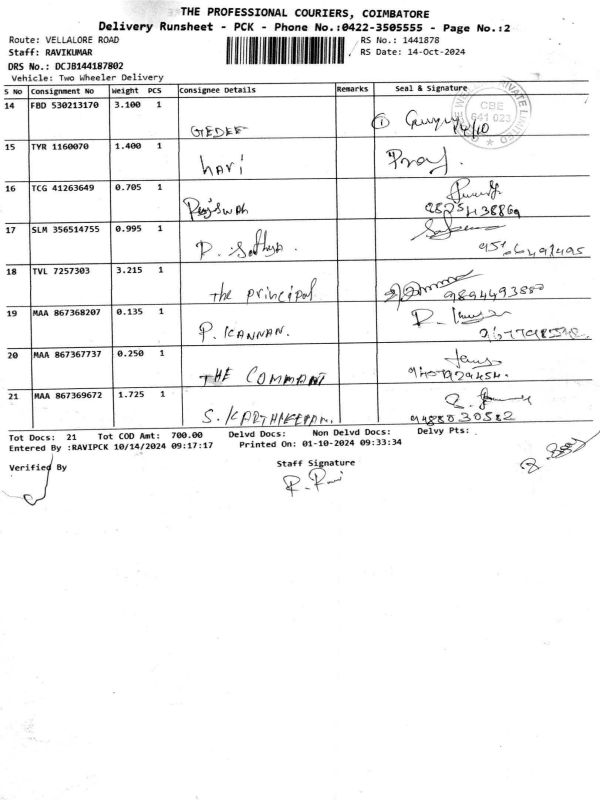 THE PROFESSIONAL COURIERS, COIMBATORE
Delivery Runsheet - PCK - Phone No.:0422-3505555 - Page No.:2
Route: VELLALORE ROAD RS No.: 1441878
Staff: RAVIKUMAR RS Date: 14-Oct-2024
DRS No.: DCJB144187802
Vehicle: Two Wheeler Delivery
S No Consignment No Weight PCS Consignee Details Remarks Seal & Signature
14 FBD 530213170 3.100 1 GEDEE 14/10
PRIVATE LIMITED
CBE
641 023
15 TYR 1160070 1.400 1 hari
16 TCG 41263649 0.705 1
17 SLM 356514755 0.995 1 P. Sathya.
18 TVL 7257303 3.215 1 The principal 9894493880
19 MAA 867368207 0.135 1 P. KANNAN.
20 MAA 867367737 0.250 1 THE COMMANT
21 MAA 869369672 1.725 1 S. KARTHIKEYAN. 9488030582
Tot Docs: 21 Tot COD Amt: 700.00 Delvd Docs: Non Delvd Docs: Delvy Pts:
Entered By :RAVIPCK 10/14/2024 09:17:17 Printed On: 01-10-2024 09:33:34
Verified By Staff Signature
R. Ravi